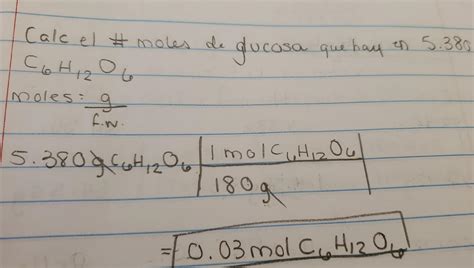 Calc el # moles de glucosa que hay en 5.380
C₆H₁₂O₆
moles: g
f.w.
5.380g C₆H₁₂O₆ | 1 mol C₆H₁₂O₆
180g
= 0.03 mol C₆H₁₂O₆